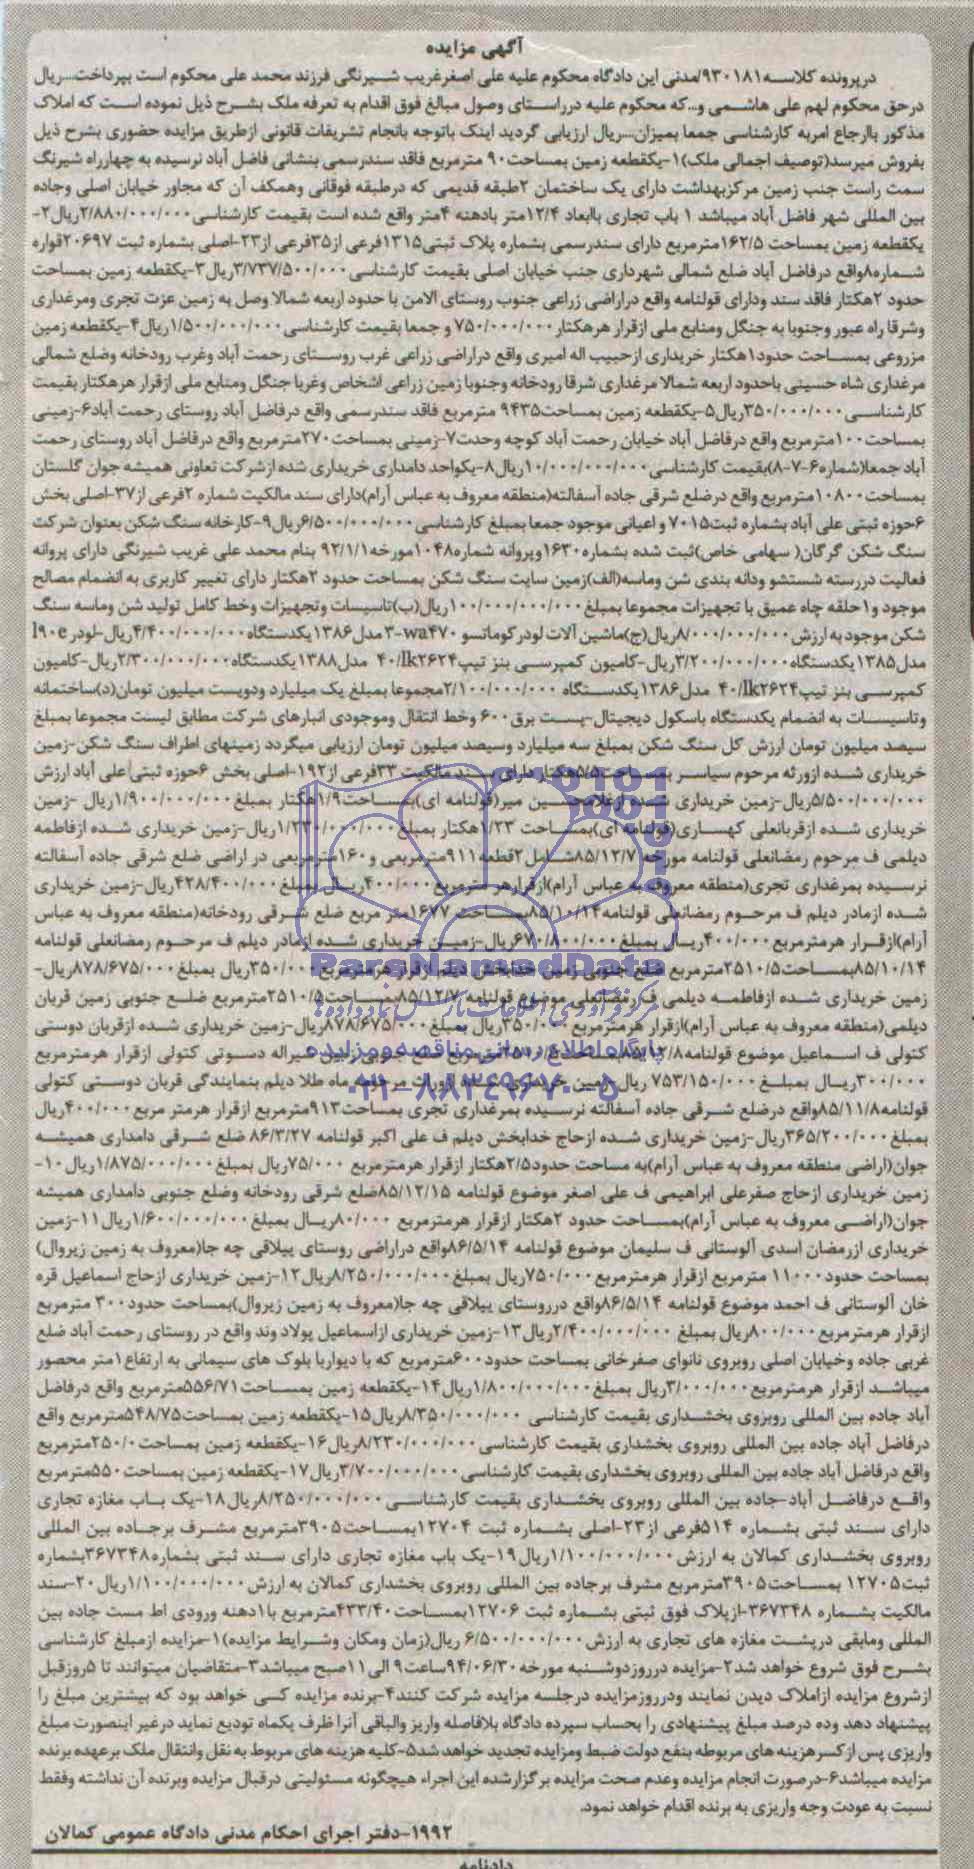 آگهی مزایده
درپرونده کلاسه۹۳۰۱۸۱/مدنی این دادگاه محکوم علیه علی اصغرغریب شیرنگی فرزند محمد علی محکوم است بپرداخت...ریال
درحق محکوم لهم علی هاشمی و...که محکوم علیه درراستای وصول مبالغ فوق اقدام به تعرفه ملک بشرح ذیل نموده است که املاک
مذکور باارجاع امربه کارشناسی جمعا بمیزان...ریال ارزیابی گردید اینک باتوجه بانجام تشریفات قانونی ازطریق مزایده حضوری بشرح ذیل
بفروش میرسد(توصیف اجمالی ملک)۱-یکقطعه زمین بمساحت۹۰ مترمربع فاقد سندرسمی بنشانی فاضل آباد نرسیده به چهارراه شیرنگ
سمت راست جنب زمین مرکزبهداشت دارای یک ساختمان ۲طبقه قدیمی که درطبقه فوقانی وهمکف آن که مجاور خیابان اصلی وجاده
بین المللی شهر فاضل آباد میباشد ۱ باب تجاری باابعاد ۱۲/۴متر بادهنه ۴متر واقع شده است بقیمت کارشناسی۲/۸۸۰/۰۰۰/۰۰۰ریال۲-
یکقطعه زمین بمساحت ۱۶۲/۵مترمربع دارای سندرسمی بشماره پلاک ثبتی۱۳۱۵فرعی از۳۵فرعی از۲۳-اصلی بشماره ثبت ۲۰۶۹۷قواره
شماره۸واقع درفاضل آباد ضلع شمالی شهرداری جنب خیابان اصلی بقیمت کارشناسی۳/۷۳۷/۵۰۰/۰۰۰ریال۳-یکقطعه زمین بمساحت
حدود ۲هکتار فاقد سند ودارای قولنامه واقع دراراضی زراعی جنوب روستای الامن با حدود اربعه شمالا وصل به زمین عزت تجری ومرغداری
وشرقا راه عبور وجنوبا به جنگل ومنابع ملی ازقرار هرهکتار۷۵۰/۰۰۰/۰۰۰ و جمعا بقیمت کارشناسی۱/۵۰۰/۰۰۰/۰۰۰ریال۴-یکقطعه زمین
مزروعی بمساحت حدود۱هکتار خریداری ازحبیب اله امیری واقع دراراضی زراعی غرب روستای رحمت آباد وغرب رودخانه وضلع شمالی
مرغداری شاه حسینی باحدود اربعه شمالا مرغداری شرقا رودخانه وجنوبا زمین زراعی اشخاص وغربا جنگل ومنابع ملی ازقرار هرهکتار بقیمت
کارشناسی۳۵۰/۰۰۰/۰۰۰ریال۵-یکقطعه زمین بمساحت۹۴۳۵ مترمربع فاقد سندرسمی واقع درفاضل آباد روستای رحمت آباد۶-زمینی
بمساحت۱۰۰مترمربع واقع درفاضل آباد خیابان رحمت آباد کوچه وحدت۷-زمینی بمساحت۲۷۰مترمربع واقع درفاضل آباد روستای رحمت
آباد جمعا(شماره۶-۷-۸)بقیمت کارشناسی۱۰/۰۰۰/۰۰۰/۰۰۰ریال۸-یکواحد دامداری خریداری شده ازشرکت تعاونی همیشه جوان گلستان
بمساحت۱۰۸۰۰مترمربع واقع درضلع شرقی جاده آسفالته(منطقه معروف به عباس آرام)دارای سند مالکیت شماره ۲فرعی از۳۷-اصلی بخش
۶حوزه ثبتی علی آباد بشماره ثبت۷۰۱۵ و اعیانی موجود جمعا بمبلغ کارشناسی۶/۵۰۰/۰۰۰/۰۰۰ریال۹-کارخانه سنگ شکن بعنوان شرکت
سنگ شکن گرگان( سهامی خاص)ثبت شده بشماره۱۶۳۰وپروانه شماره۱۰۴۸مورخه۹۲/۱/۱ بنام محمد علی غریب شیرنگی دارای پروانه
فعالیت دررسته شستشو ودانه بندی شن وماسه(الف)زمین سایت سنگ شکن بمساحت حدود ۲هکتار دارای تغییر کاربری به انضمام مصالح
موجود و۱حلقه چاه عمیق با تجهیزات مجموعا بمبلغ ۱۰۰/۰۰۰/۰۰۰/۰۰۰ریال(ب)تاسیسات وتجهیزات وخط کامل تولید شن وماسه سنگ
شکن موجود به ارزش ۸/۰۰۰/۰۰۰/۰۰۰ریال(ج)ماشین آلات لودرکوماتسو ۴۷۰wa-۳ مدل۱۳۸۶یکدستگاه۴/۴۰۰/۰۰۰/۰۰۰ریال-لودر l۹۰e
مدل۱۳۸۵یکدستگاه۳/۲۰۰/۰۰۰/۰۰۰ریال-کامیون کمپرسی بنز تیپ۲۶۲۴lk/۴۰ مدل۱۳۸۸یکدستگاه۲/۳۰۰/۰۰۰/۰۰۰ریال-کامیون
کمپرسی بنز تیپ۲۶۲۴lk/۴۰ مدل۱۳۸۶یکدستگاه ۲/۱۰۰/۰۰۰/۰۰۰مجموعا بمبلغ یک میلیارد ودویست میلیون تومان(د)ساختمانه
وتاسیسات به انضمام یکدستگاه باسکول دیجیتال-پست برق۶۰۰ وخط انتقال وموجودی انبارهای شرکت مطابق لیست مجموعا بمبلغ
سیصد میلیون تومان ارزش کل سنگ شکن بمبلغ سه میلیارد وسیصد میلیون تومان ارزیابی میگردد زمینهای اطراف سنگ شکن-زمین
خریداری شده ازورثه مرحوم سیاسر بمساحت۵/۵هکتار دارای سند مالکیت ۳۳فرعی از۱۹۲-اصلی بخش ۶حوزه ثبتی علی آباد ارزش
۵/۵۰۰/۰۰۰/۰۰۰ریال-زمین خریداری شده ازغلامحسین میر(قولنامه ای)بمساحت۱/۹هکتار بمبلغ۱/۹۰۰/۰۰۰/۰۰۰ریال -زمین
خریداری شده ازقربانعلی کهساری(قولنامه ای)بمساحت ۱/۲۳هکتار بمبلغ۱/۲۳۰/۰۰۰/۰۰۰ریال-زمین خریداری شده ازفاطمه
دیلمی ف مرحوم رمضانعلی قولنامه مورخه ۸۵/۱۲/۷شامل۲قطعه۹۱۱مترمربعی و۱۶۰مترمربعی در اراضی ضلع شرقی جاده آسفالته
نرسیده بمرغداری تجری(منطقه معروف به عباس آرام)ازقرارهر مترمربع۴۰۰/۰۰۰ریال بمبلغ۴۲۸/۴۰۰/۰۰۰ریال-زمین خریداری
شده ازمادر دیلم ف مرحوم رمضانعلی قولنامه۸۵/۱۰/۱۴بمساحت ۱۶۷۷متر مربع ضلع شرقی رودخانه(منطقه معروف به عباس
آرام)ازقرار هرمترمربع۴۰۰/۰۰۰ریال بمبلغ۶۷۰/۸۰۰/۰۰۰ریال-زمین خریداری شده ازمادر دیلم ف مرحوم رمضانعلی قولنامه
۸۵/۱۰/۱۴بمساحت۲۵۱۰/۵مترمربع ضلع جنوبی زمین خدابخش دیلم ازقرار هرمترمربع۳۵۰/۰۰۰ریال بمبلغ۸۷۸/۶۷۵/۰۰۰ریال-
زمین خریداری شده ازفاطمه دیلمی ف رمضانعلی موضوع قولنامه ۸۵/۱۲/۷بمساحت۲۵۱۰/۵مترمربع ضلع جنوبی زمین قربان
دیلمی(منطقه معروف به عباس آرام)ازقرار هرمترمربع ۳۵۰/۰۰۰ریال بمبلغ ۸۷۸/۶۷۵/۰۰۰ریال-زمین خریداری شده ازقربان دوستی
کتولی ف اسماعیل موضوع قولنامه۸۵/۱۲/۸بمساحت۲۵۱۰/۵مترمربع ضلع جنوبی زمین شیراله دسوتی کتولی ازقرار هرمترمربع
۳۰۰/۰۰۰ریال بمبلغ ۷۵۳/۱۵۰/۰۰۰ ریال-زمین خریداری شده ازوراث مرحومه ماه طلا دیلم بنمایندگی قربان دوستی کتولی
قولنامه۸۵/۱۱/۸واقع درضلع شرقی جاده آسفالته نرسیده بمرغداری تجری بمساحت۹۱۳مترمربع ازقرار هرمتر مربع۴۰۰/۰۰۰ریال
بمبلغ۳۶۵/۲۰۰/۰۰۰ریال-زمین خریداری شده ازحاج خدابخش دیلم ف علی اکبر قولنامه ۸۶/۳/۲۷ ضلع شرقی دامداری همیشه
جوان(اراضی منطقه معروف به عباس آرام)به مساحت حدود۲/۵هکتار ازقرار هرمترمربع ۷۵/۰۰۰ریال بمبلغ۱/۸۷۵/۰۰۰/۰۰۰ریال۱۰-
زمین خریداری ازحاج صفرعلی ابراهیمی ف علی اصغر موضوع قولنامه ۸۵/۱۲/۱۵ضلع شرقی رودخانه وضلع جنوبی دامداری همیشه
جوان(اراضی معروف به عباس آرام)بمساحت حدود ۲هکتار ازقرار هرمترمربع ۸۰/۰۰۰ریال بمبلغ۱/۶۰۰/۰۰۰/۰۰۰ریال۱۱-زمین
خریداری ازرمضان اسدی آلوستانی ف سلیمان موضوع قولنامه ۸۶/۵/۱۴واقع دراراضی روستای ییلاقی چه جا(معروف به زمین زیروال)
بمساحت حدود۱۱۰۰۰ مترمربع ازقرار هرمترمربع۷۵۰/۰۰۰ریال بمبلغ۸/۲۵۰/۰۰۰/۰۰۰ریال۱۲-زمین خریداری ازحاج اسماعیل قره
خان آلوستانی ف احمد موضوع قولنامه ۸۶/۵/۱۴واقع درروستای ییلاقی چه جا(معروف به زمین زیروال)بمساحت حدود۳۰۰ مترمربع
ازقرار هرمترمربع۸۰۰/۰۰۰ریال بمبلغ ۲/۴۰۰/۰۰۰/۰۰۰ریال۱۳-زمین خریداری ازاسماعیل پولاد وند واقع در روستای رحمت آباد ضلع
غربی جاده وخیابان اصلی روبروی نانوای صفرخانی بمساحت حدود۶۰۰مترمربع که با دیواربا بلوک های سیمانی به ارتفاع۱متر محصور
میباشد ازقرار هرمترمربع۳/۰۰۰/۰۰۰ریال بمبلغ۱/۸۰۰/۰۰۰/۰۰۰ریال۱۴-یکقطعه زمین بمساحت۵۵۶/۷۱مترمربع واقع درفاضل
آباد جاده بین المللی روبروی بخشداری بقیمت کارشناسی ۸/۳۵۰/۰۰۰/۰۰۰ریال۱۵-یکقطعه زمین بمساحت۵۴۸/۷۵مترمربع واقع
درفاضل آباد جاده بین المللی روبروی بخشداری بقیمت کارشناسی ۸/۲۳۰/۰۰۰/۰۰۰ریال۱۶-یکقطعه زمین بمساحت۲۵۰/۰مترمربع
واقع درفاضل آباد جاده بین المللی روبروی بخشداری بقیمت کارشناسی۳/۷۰۰/۰۰۰/۰۰۰ریال۱۷-یکقطعه زمین بمساحت۵۵۰مترمربع
واقع درفاضل آباد-جاده بین المللی روبروی بخشداری بقیمت کارشناسی۸/۲۵۰/۰۰۰/۰۰۰ریال۱۸-یک باب مغازه تجاری
دارای سند ثبتی بشماره ۵۱۴فرعی از۲۳-اصلی بشماره ثبت ۱۲۷۰۴بمساحت۳۹۰۵مترمربع مشرف برجاده بین المللی
روبروی بخشداری کمالان به ارزش ۱/۱۰۰/۰۰۰/۰۰۰ریال۱۹-یک باب مغازه تجاری دارای سند ثبتی بشماره۳۶۷۳۴۸بشماره
ثبت۱۲۷۰۵ بمساحت۳۹۰۵مترمربع مشرف برجاده بین المللی روبروی بخشداری کمالان به ارزش۱/۱۰۰/۰۰۰/۰۰۰ریال۲۰-سند
مالکیت بشماره ۳۶۷۳۴۸-ازپلاک فوق ثبتی بشماره ثبت ۱۲۷۰۶بمساحت۴۳۳/۴۰مترمربع با۱دهنه ورودی اط مست جاده بین
المللی ومابقی درپشت مغازه های تجاری به ارزش۶/۵۰۰/۰۰۰/۰۰۰ ریال(زمان ومکان وشرایط مزایده)۱-مزایده ازمبلغ کارشناسی
بشرح فوق شروع خواهد شد۲-مزایده درروزدوشنبه مورخه۹۴/۰۶/۳۰ساعت۹الی۱۱صبح میباشد۳-متقاضیان میتوانند تا ۵روزقبل
ازشروع مزایده ازاملاک دیدن نمایند ودرروزمزایده درجلسه مزایده شرکت کنند۴-برنده مزایده کسی خواهد بود که بیشترین مبلغ را
پیشنهاد دهد وده درصد مبلغ پیشنهادی را بحساب سپرده دادگاه بلافاصله واریز والباقی آنرا ظرف یکماه تودیع نماید درغیر اینصورت مبلغ
واریزی پس ازکسرهزینه های مربوطه بنفع دولت ضبط ومزایده تجدید خواهد شد۵-کلیه هزینه های مربوط به نقل وانتقال ملک برعهده برنده
مزایده میباشد۶-درصورت انجام مزایده وعدم صحت مزایده برگزارشده این اجراء هیچگونه مسئولیتی درقبال مزایده وبرنده آن نداشته وفقط
نسبت به عودت وجه واریزی به برنده اقدام خواهد نمود.
۱۹۹۲-دفتر اجرای احکام مدنی دادگاه عمومی کمالان
ParsNamadData
مرکز فرآوری اطلاعات پارس نماد داده ها
پایگاه اطلاع رسانی مناقصه و مزایده
۰۲۱-۸۸۳۴۹۶۷۰-۵
دادنامه